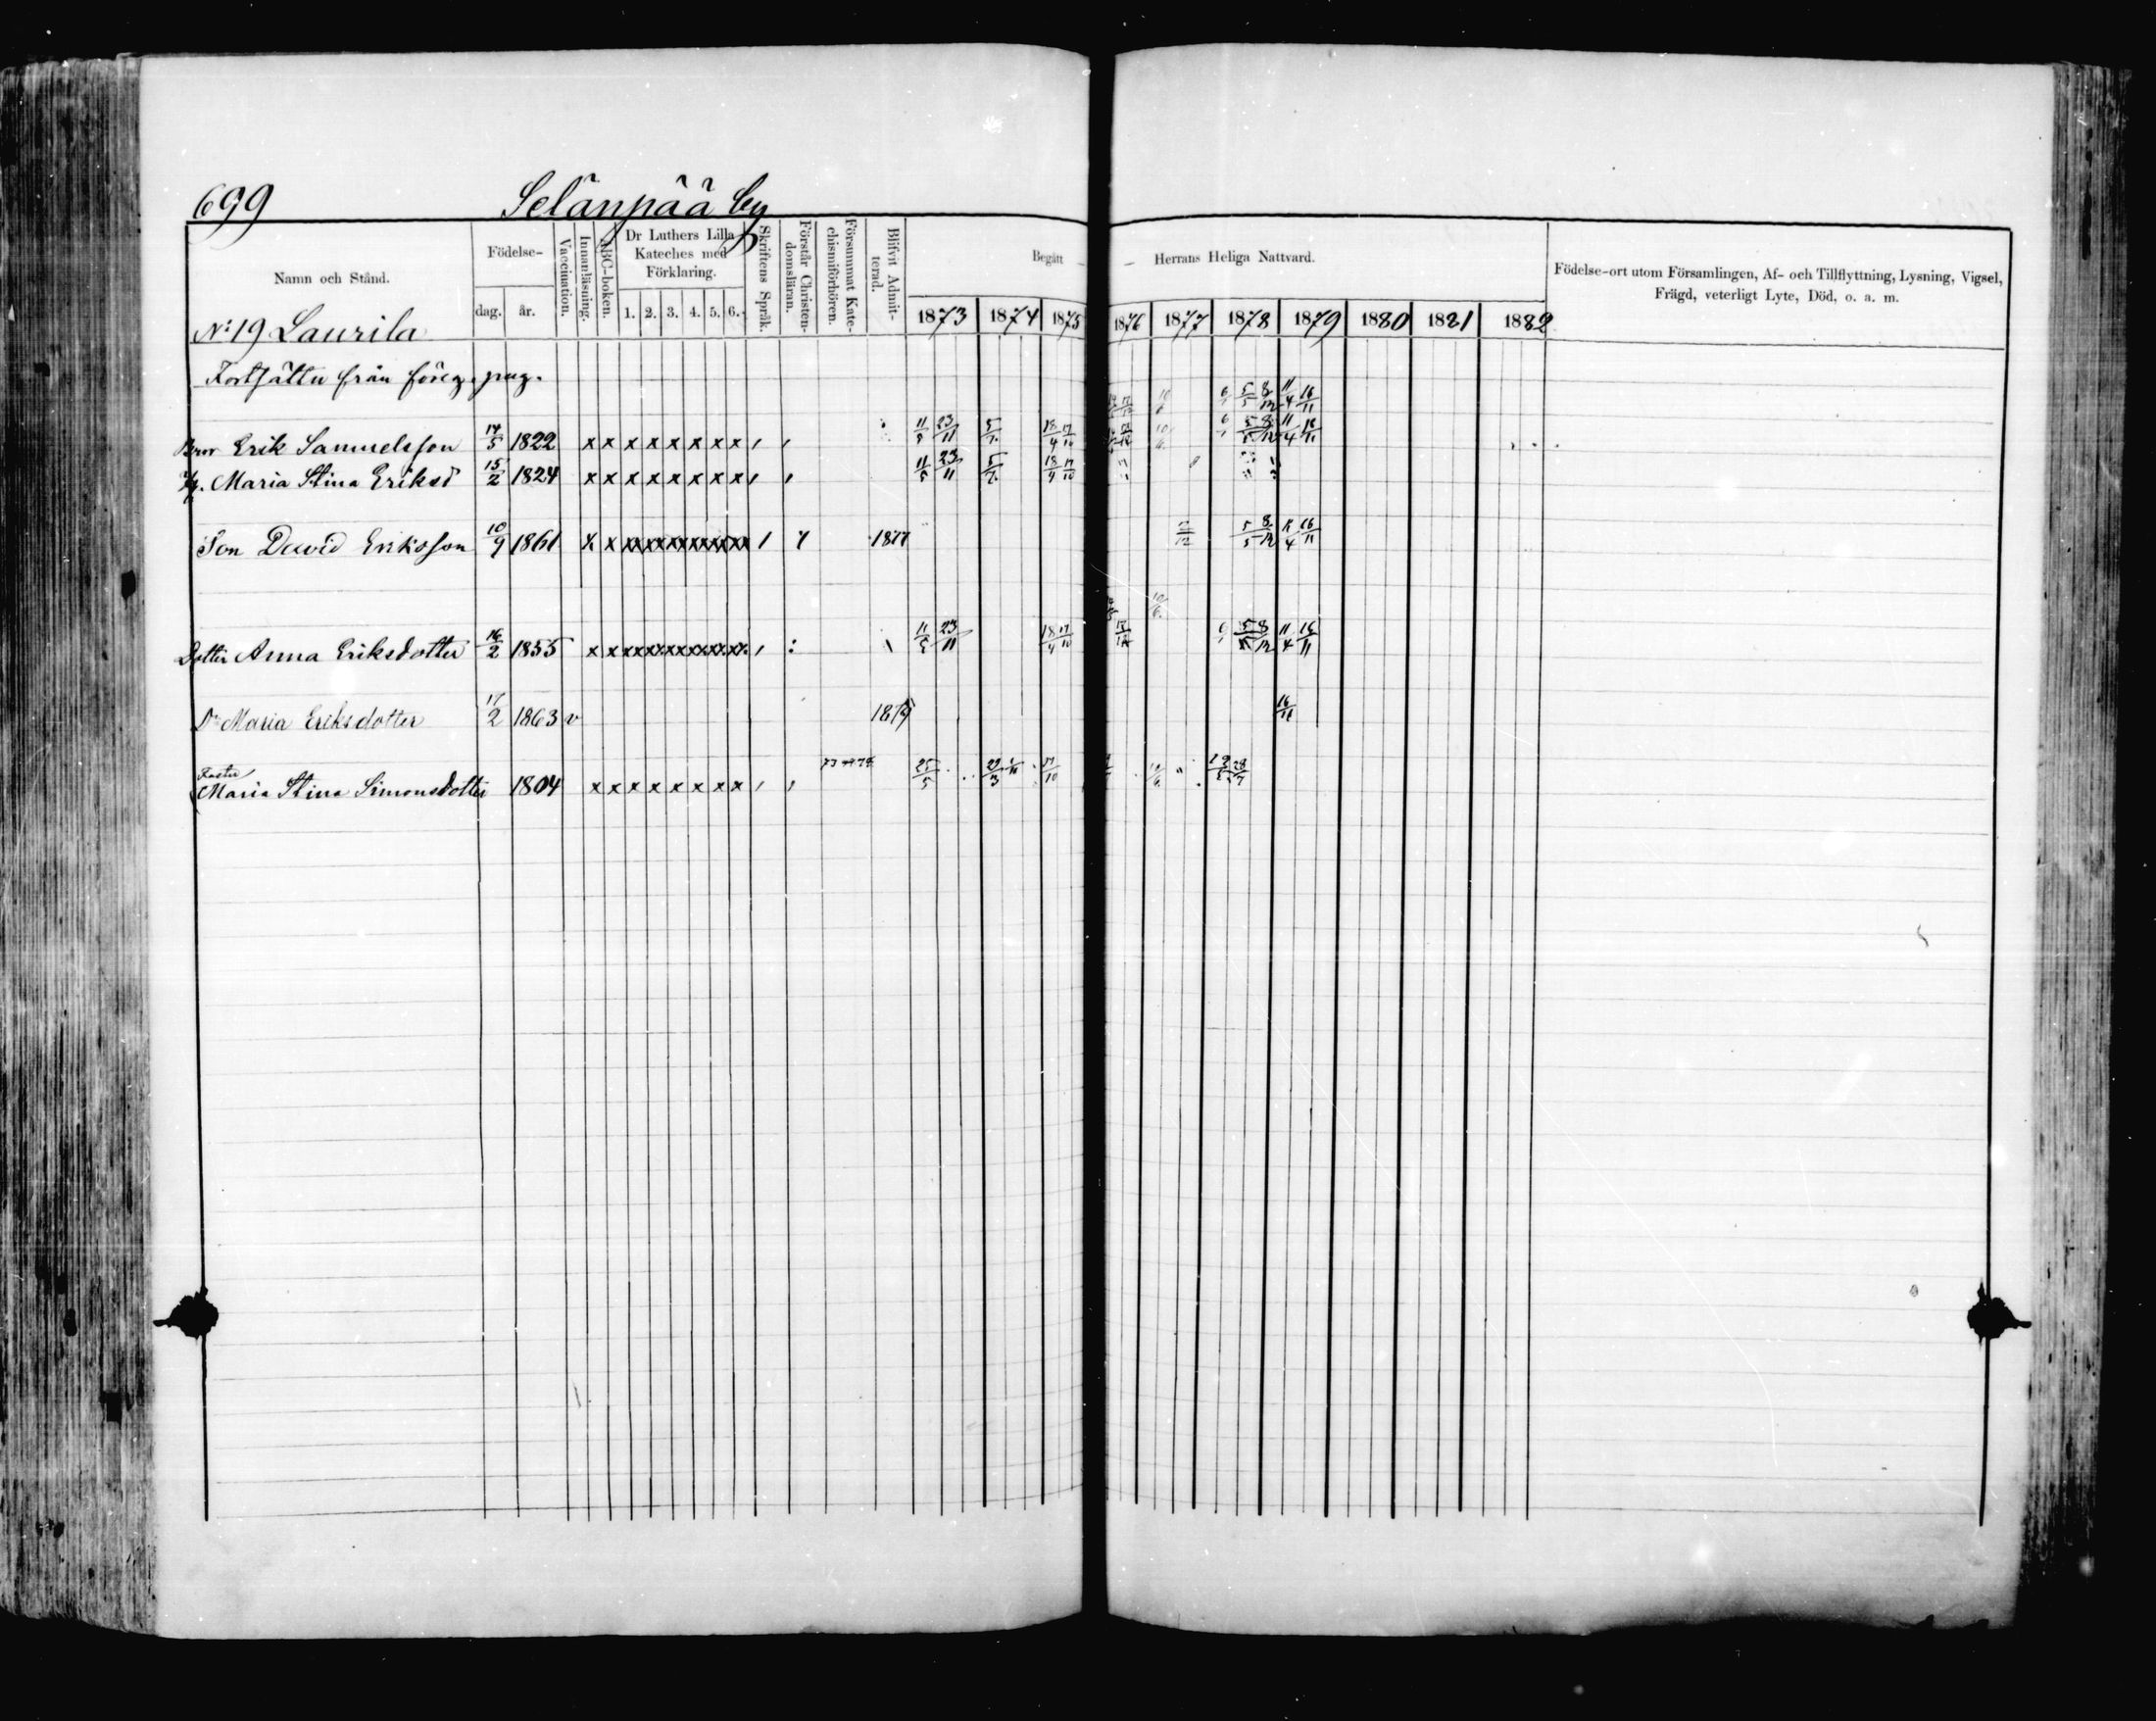 699 Selänpää by
Namn och Stånd.
Födelse-
dag. år.
Vaccination.
Innanläsning.
ABC-boken.
Dr Luthers Lilla
Kateches med
Förklaring.
1. 2. 3. 4. 5. 6.
Skriftens Språk.
Förstår Christen-
domsläran.
Försummat Kate-
chismiförhören.
Blifvit Admit-
terad.
Begått — — Herrans Heliga Nattvard.
1873 1874 1875 1876 1877 1878 1879 1880 1881 1882
Födelse-ort utom Församlingen, Af- och Tillflyttning, Lysning, Vigsel,
Frägd, veterligt Lyte, Död, o. a. m.
No 19 Laurila
Fortsättn från föreg. pag.
6/1 5/5 8/12 11/4 16/11
Bror Erik Samuelsson 14/5 1822 x x x x x x x x 11/5 23/11 5/7 18/4 17/10 10/6 6/1 5/5 8/12 11/4 16/11
Maria Stina Eriksd 15/2 1824 x x x x x x x x 11/5 23/11 5/7 18/4 17/10
Son David Eriksson 10/9 1861 x x x x x x x x 1877 5/5 8/12 11/4 16/11
10/6
Dotter Anna Eriksdotter 16/2 1855 x x x x x x x x 11/5 23/11 18/4 17/10 6/1 5/5 8/12 11/4 16/11
Dr Maria Eriksdotter 17/2 1863 v 1879 16/11
Faster
Maria Stina Simonsdotter 1804 x x x x x x x x 25/5 17/10 28/7